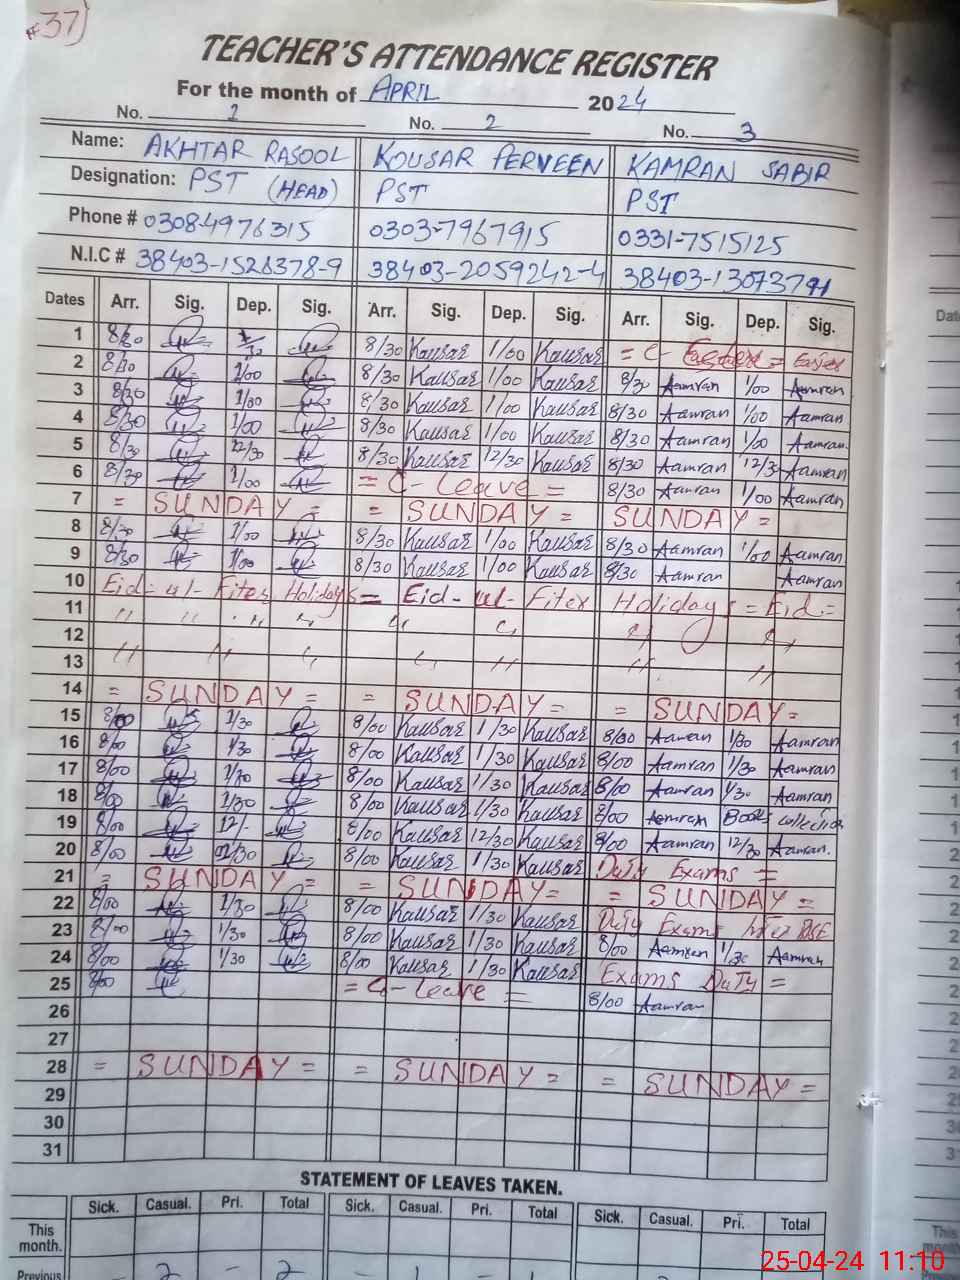 # 37)
TEACHER'S ATTENDANCE REGISTER
For the month of APRIL 2024
No. 1 No. 2 No. 3
Name: AKHTAR RASOOL KOUSAR PERVEEN KAMRAN SABIR
Designation: PST (HEAD) PST PST
Phone # 0308-4976315 0303-7967915 0331-7515125
N.I.C # 38403-1526378-9 38403-2059242-4 38403-1307379
Dates Arr. Sig. Dep. Sig. Arr. Sig. Dep. Sig. Arr. Sig. Dep. Sig.
1 8/30 8/30 Kausar 1/00 Kausar = C-
2 8/30 1/00 8/30 Kausar 1/00 Kausar 8/30 Aamran 1/00 Aamran
3 8/30 1/00 8/30 Kausar 1/00 Kausar 8/30 Aamran 1/00 Aamran
4 8/30 1/00 8/30 Kausar 1/00 Kausar 8/30 Aamran 1/00 Aamran
5 8/30 12/30 8/30 Kausar 12/30 Kausar 8/30 Aamran 12/30 Aamran
6 8/30 1/00 = C-Leave = 8/30 Aamran 1/00 Aamran
7 = SUNDAY = = SUNDAY = SUNDAY =
8 8/30 1/00 8/30 Kausar 1/00 Kausar 8/30 Aamran 1/00 Aamran
9 8/30 1/00 8/30 Kausar 1/00 Kausar 8/30 Aamran Aamran
10 Eid-ul-Fiter Holidays = Eid-ul-Fiter Holidays = Eid =
11 " " " " " " " "
12
13 " " " " " " "
14 = SUNDAY = = SUNDAY = = SUNDAY =
15 8/00 1/30 8/00 Kausar 1/30 Kausar 8/00 Aamran 1/30 Aamran
16 8/00 1/30 8/00 Kausar 1/30 Kausar 8/00 Aamran 1/30 Aamran
17 8/00 1/30 8/00 Kausar 1/30 Kausar 8/00 Aamran 1/30 Aamran
18 8/00 1/30 8/00 Kausar 1/30 Kausar 8/00 Aamran Books collection
19 8/00 12/- 8/00 Kausar 12/30 Kausar 8/00 Aamran 12/30 Aamran.
20 8/00 8/00 Kausar 1/30 Kausar Duty Exams =
21 = SUNDAY = = SUNDAY = = SUNDAY =
22 8/00 1/30 8/00 Kausar 1/30 Kausar Duty Exams
23 8/00 1/30 8/00 Kausar 1/30 Kausar 8/00 Aamran 1/30 Aamran
24 8/00 1/30 8/00 Kausar 1/30 Kausar Exams Duty =
25 8/00 = C-Leave = 8/00 Aamran
26
27
28 = SUNDAY = = SUNDAY = = SUNDAY =
29
30
31
STATEMENT OF LEAVES TAKEN.
Sick. Casual. Pri. Total Sick. Casual. Pri. Total Sick. Casual. Pri. Total
This month.
Previous - 2 - 2 - 1 - 1
25-04-24 11:10